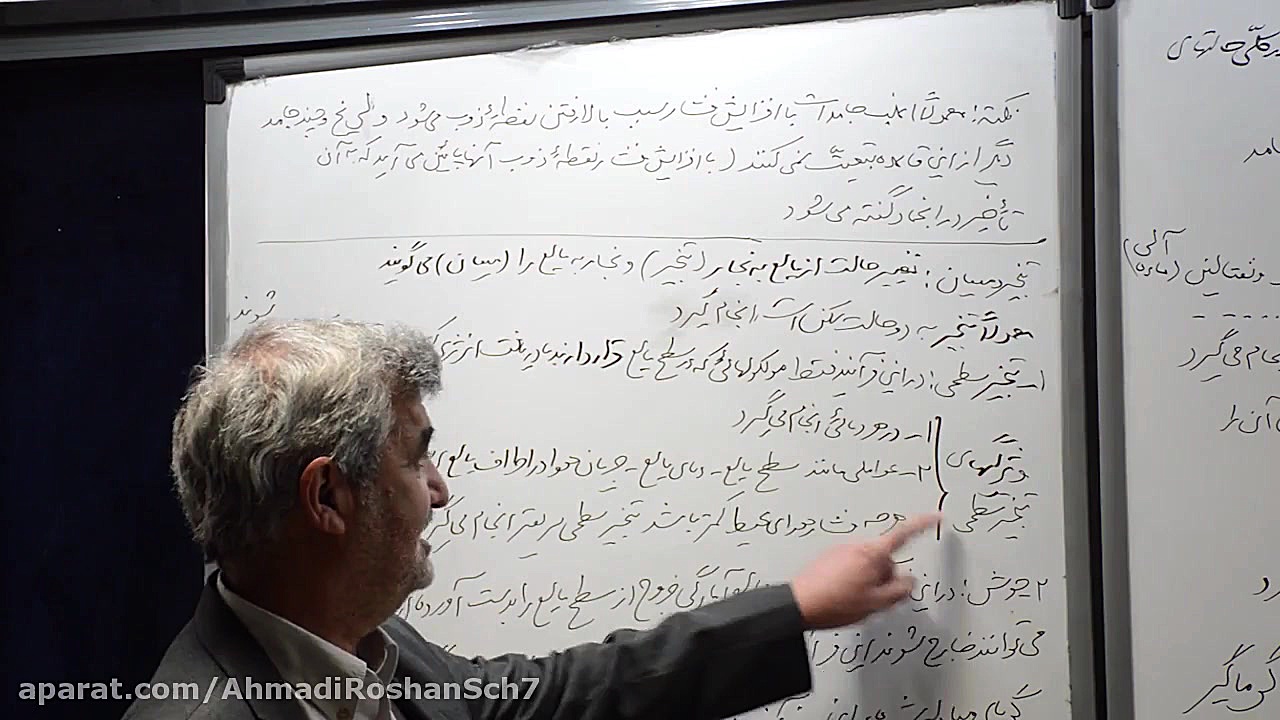 نکته: معمولاً اغلب جامدات با افزایش فشار سبب بالا رفتن نقطهٔ ذوب می‌شود ولی یخ و چند جامد
دیگر از این قاعده تبعیت نمی‌کنند ( با افزایش فشار نقطهٔ ذوب آنها پایین می‌آید که به آن
تأخیر در انجماد گفته می‌شود
تبخیر و میعان : تغییر حالت از مایع به بخار (تبخیر) و بخار به مایع را (میعان) می‌گویند
معمولاً تبخیر به دو حالت ممکن است انجام گیرد
شوند
۱- تبخیر سطحی : در این فرآیند فقط مولکولهائی که در سطح مایع قرار دارند با دریافت انرژی
ویژگیهای تبخیر سطحی
۱- در هر دمائی انجام می‌گیرد
۲- عواملی مانند سطح مایع - دمای مایع - جریان هوا در اطراف مایع
هرچه فشار هوای محیط کمتر باشد تبخیر سطحی سریعتر انجام می‌گیرد
۲- جوش : در این آمادگی خروج از سطح مایع را بدست آورده
می‌توانند خارج شوند این
گرمای
کلی حالتهای
جامد
و نفتالین (ماده آلی)
انجام می‌گیرد
آن را
گرماگیر
aparat.com/AhmadiRoshanSch7